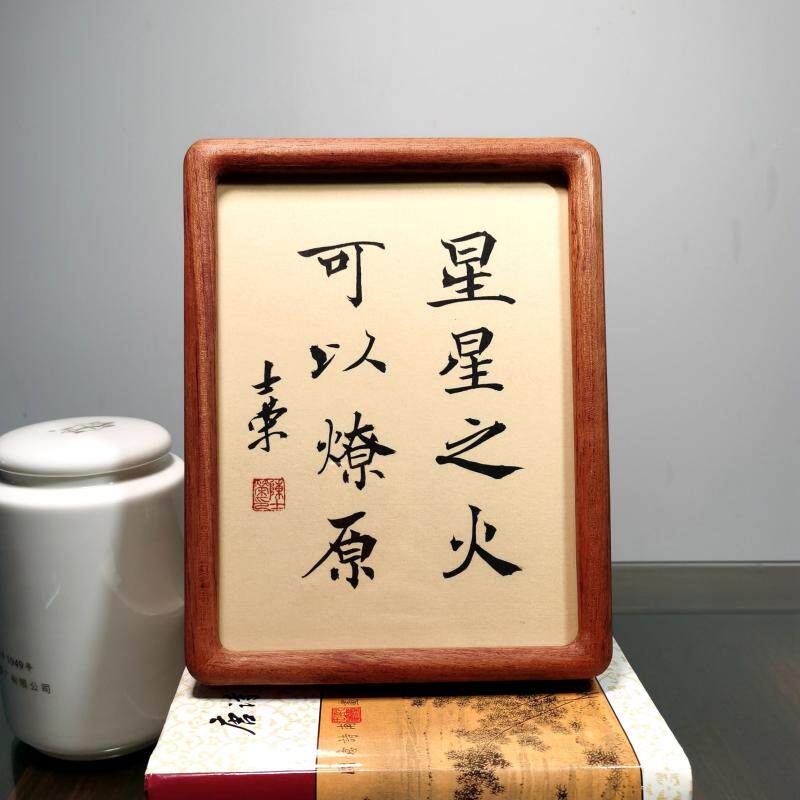 星星之火
可以燎原
士荣
1949年
公司